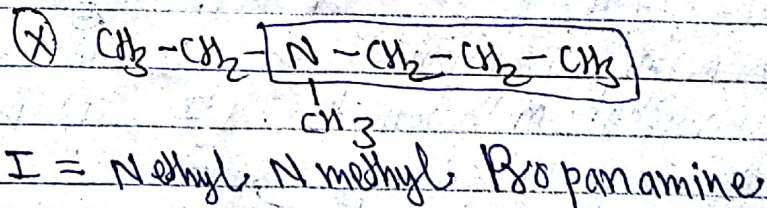 (X) CH3-CH2-N-CH2-CH2-CH3
CH3
I = N ethyl, N methyl Propanamine